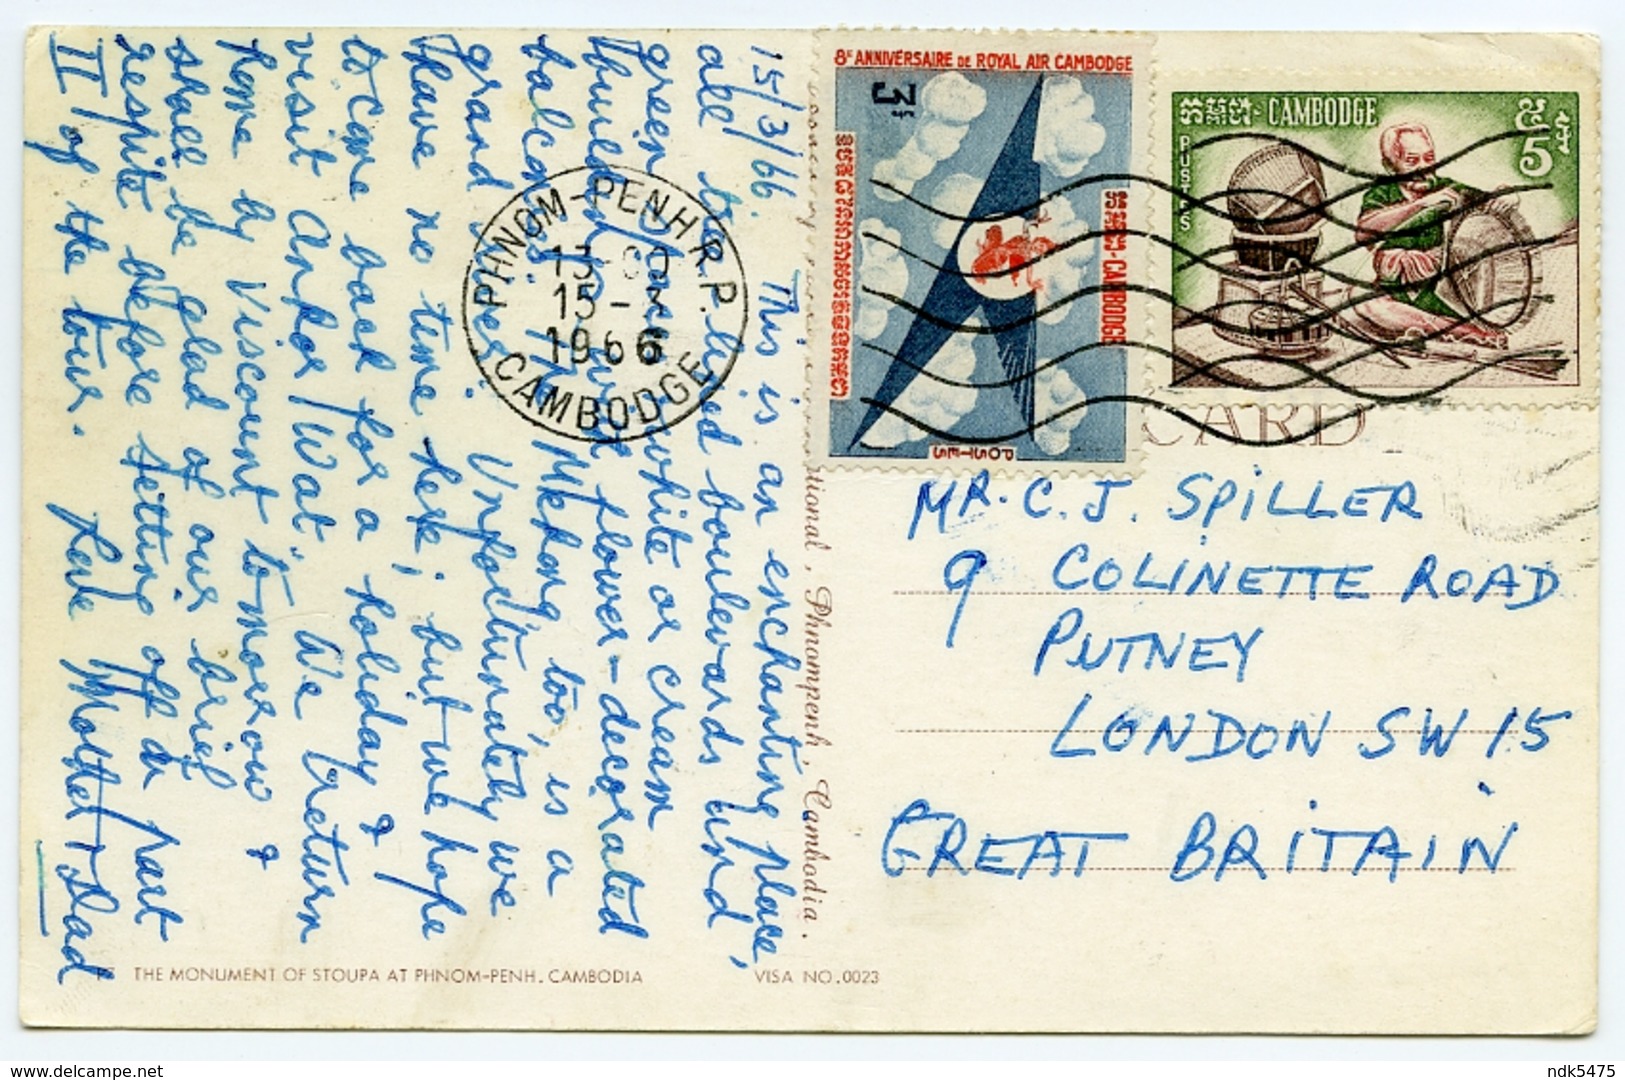 15/3/66. This is an enchanting place,
all tree-lined boulevards and
green lawns, white or cream
buildings with flower-decorated
balconies. The Mekong, too, is a
grand river. Unfortunately we
have no time here; but we hope
to come back for a holiday &
visit "Ankor Wat". We return
home by Viscount tomorrow &
shall be glad of our brief
respite before setting off on part
II of the tour. Love Mother & Dad
8E ANNIVERSAIRE DE ROYAL AIR CAMBODGE
3F
CAMBODGE
POSTES
CAMBODGE
5
POSTES
PHNOM-PENH R.P.
15-3
1966
CAMBODGE
CARD
MR. C. J. SPILLER
9 COLINETTE ROAD
PUTNEY
LONDON SW15.
GREAT BRITAIN
Phnompenh, Cambodia.
THE MONUMENT OF STOUPA AT PHNOM-PENH. CAMBODIA
VISA NO.0023
ndk5475